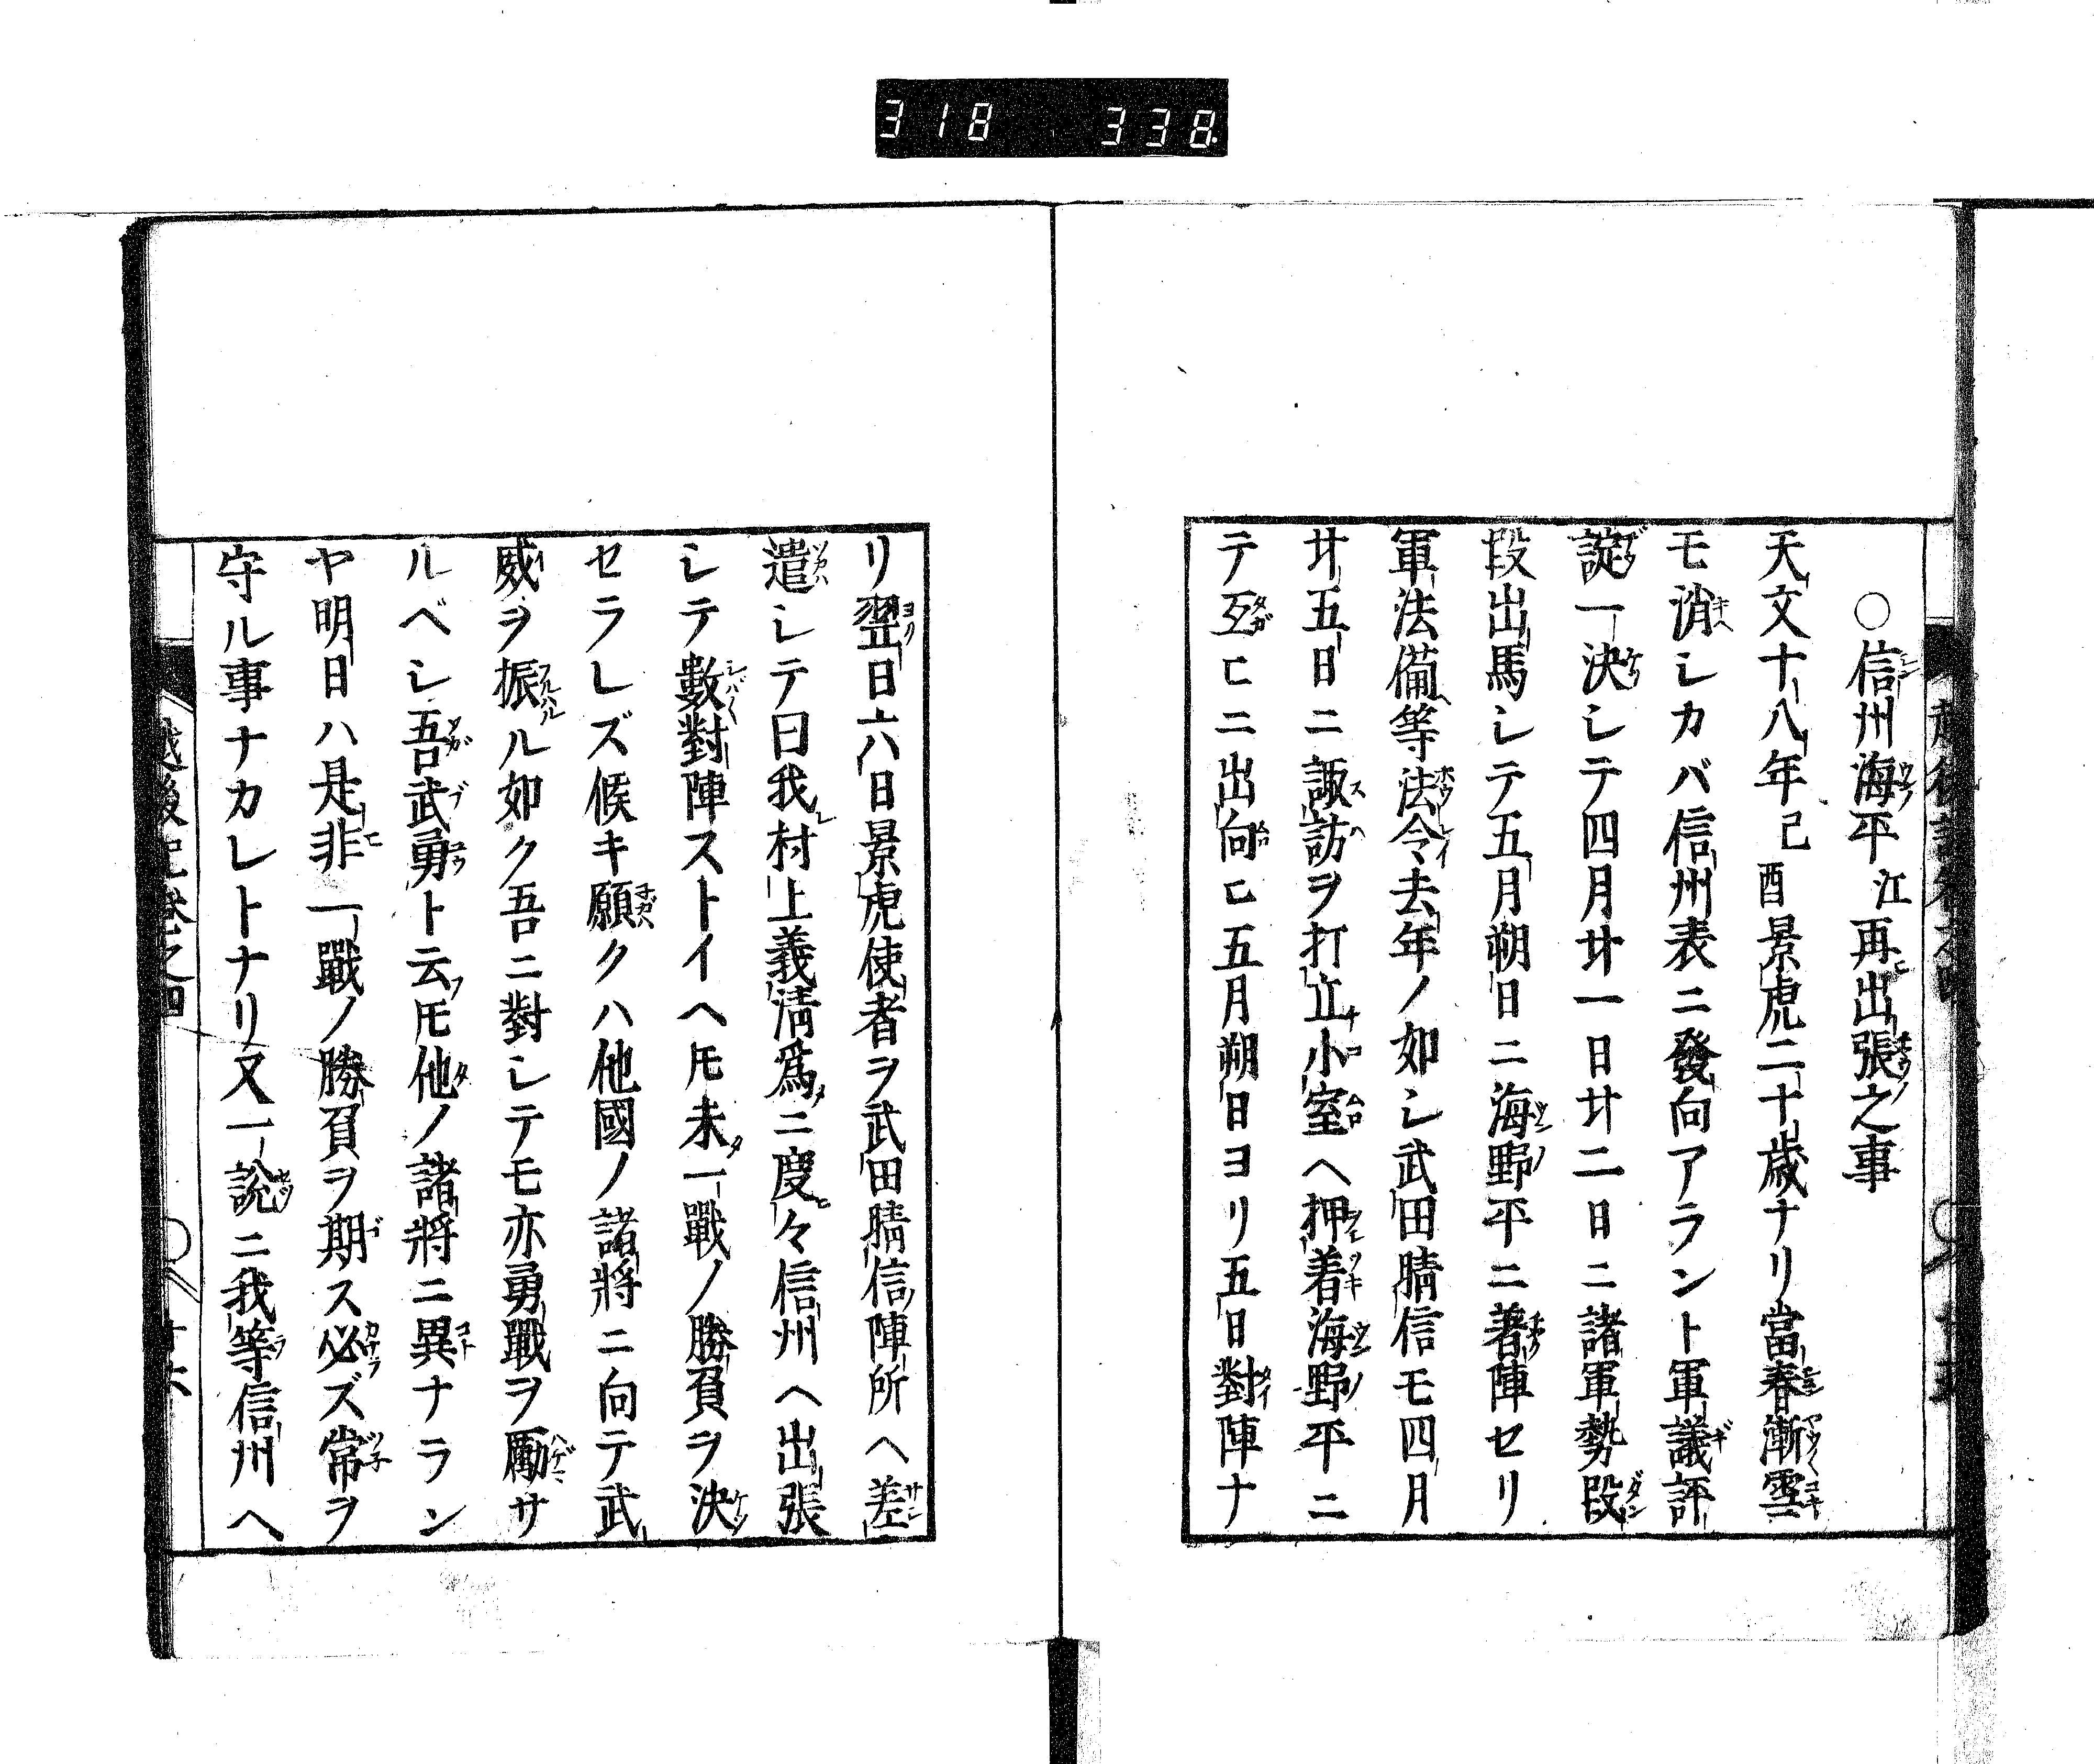 318 338
○信州海平江再出張之事
天文十八年己酉景虎二十歳ナリ當春漸雪
モ消シカバ信州表ニ發向アラント軍議評
諚一決シテ四月廿一日廿二日ニ諸軍勢段
段出馬シテ五月朔日ニ海野平ニ著陣セリ
軍法備等法令去年ノ如シ武田晴信モ四月
廿五日ニ諏訪ヲ打立小室ヘ押着海野平ニ
テ互ヒニ出向ヒ五月朔日ヨリ五日對陣ナ
リ翌日六日景虎使者ヲ武田晴信陣所ヘ差
遣シテ曰我村上義清爲ニ度々信州ヘ出張
シテ數對陣ストイヘ𪜈未一戰ノ勝負ヲ決
セラレズ候キ願クハ他國ノ諸將ニ向テ武
威ヲ振ル如ク吾ニ對シテモ亦勇戰ヲ勵サ
ルベシ吾武勇ト云𪜈他ノ諸將ニ異ナラン
ヤ明日ハ是非一戰ノ勝負ヲ期ス必ズ常ヲ
守ル事ナカレトナリ又一說ニ我等信州ヘ
越後記卷之四